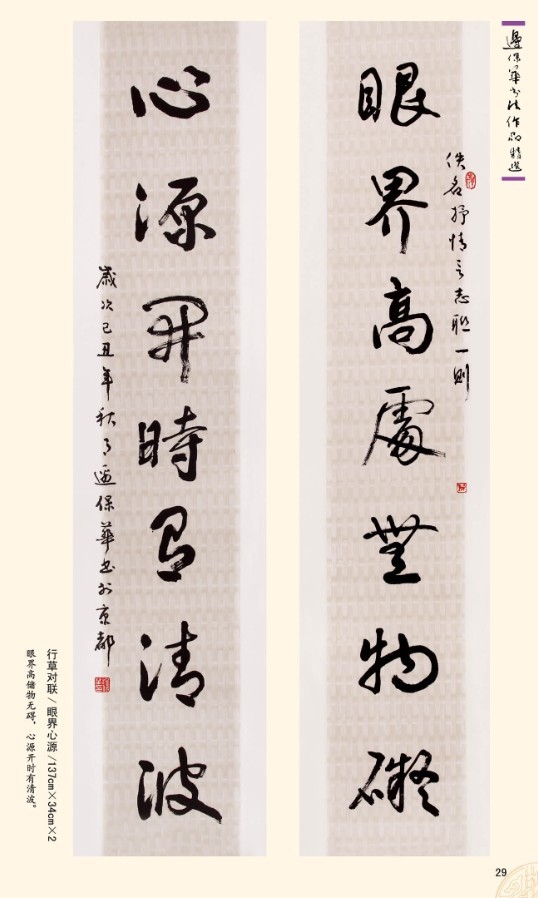 邊保華书法作品精選
佚名抒情言志联一則
眼界高處無物礙
心源開時有清波
歲次己丑年秋月邊保華书於京都
行草对联 / 眼界心源 /137cm×34cm×2
眼界高储物无碍，心源开时有清波。
29